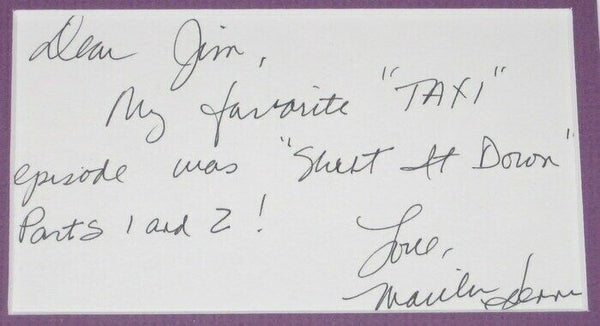 Dear Jim,
My favorite "TAXI"
episode was "Shut It Down"
Parts 1 and 2!
Love,
Marilu Henner